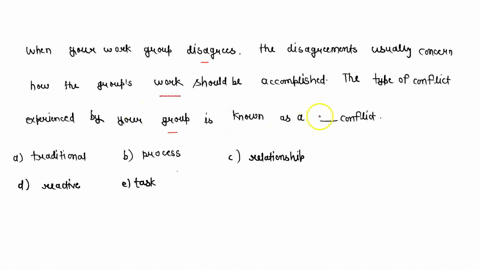 When your work group disagrees. the disagreements usually concern
how the group's work should be accomplished. The type of conflict
experienced by your group is known as a __ conflict.
a) traditional b) process c) relationship
d) reactive e) task